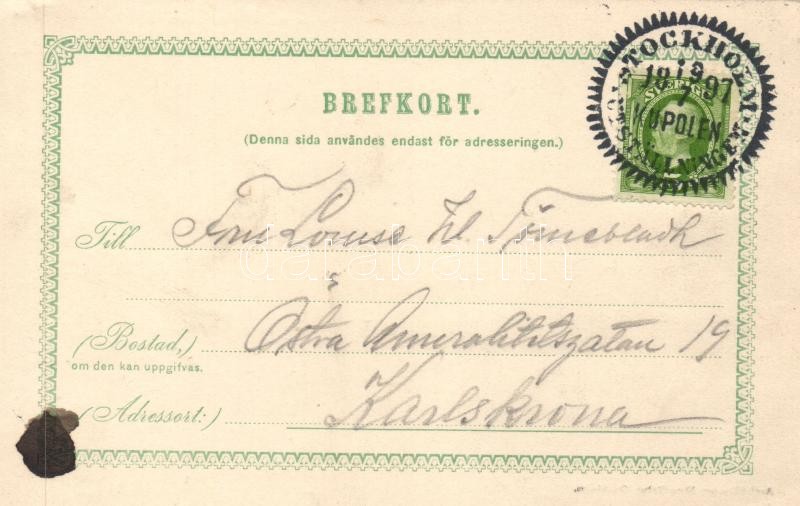 STOCKHOLM
13
18 97
7
KUPOLEN
UTSTÄLLNINGEN
SVERIGE
BREFKORT.
(Denna sida användes endast för adresseringen.)
Till Fru Louise
Östra Amiralitetsgatan 19
(Bostad,)
om den kan uppgifvas.
(Adressort:) Karlskrona
darabanth